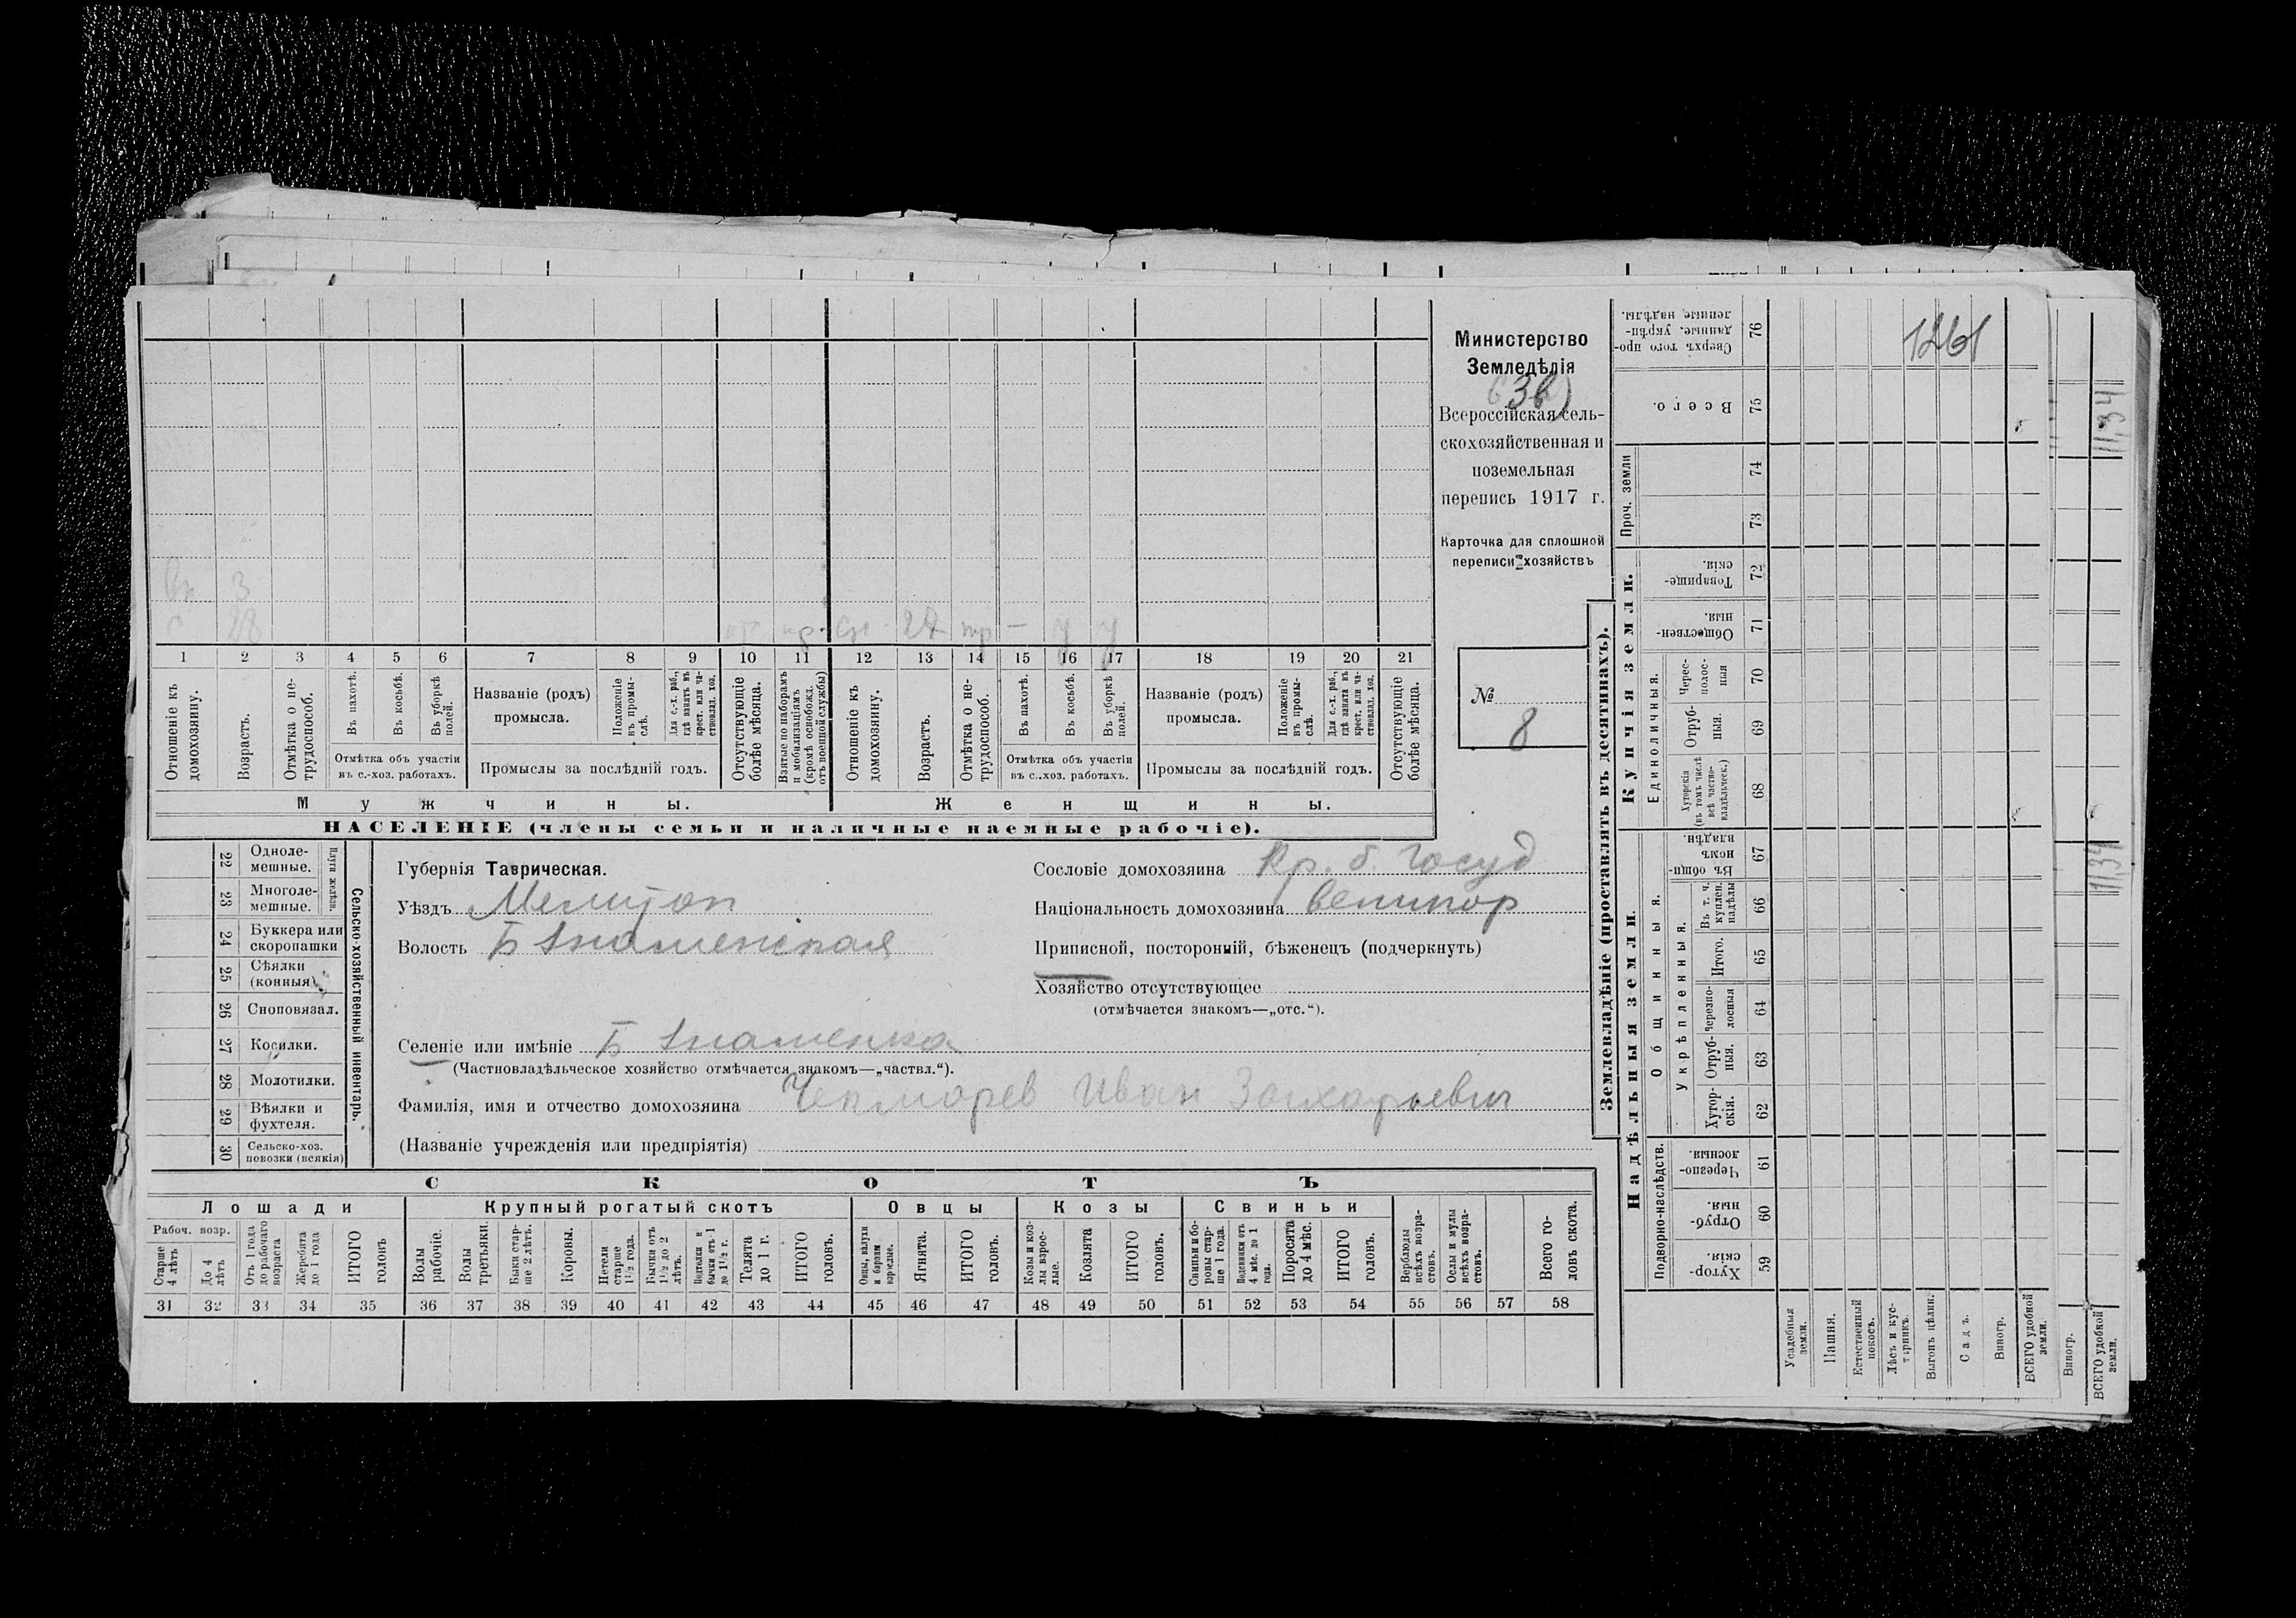 Министерство
Земледѣлія
Всероссійская сель-
скохозяйственная и
поземельная
перепись 1917 г.
Карточка для сплошной
переписи хозяйствъ
№
8
вн 3
с 28 ж 27 гр — у у
1 2 3 4 5 6 7 8 9 10 11 12 13 14 15 16 17 18 19 20 21
Отношеніе къ домохозяину.
Возрастъ.
Отмѣтка о не-трудоспособ.
Въ пахотѣ.
Въ косьбѣ.
Въ уборкѣ полей.
Отмѣтка объ участіи
въ с.-хоз. работахъ.
Названіе (родъ)
промысла.
Положеніе въ промы-слѣ.
Для с.-х. раб., гдѣ занятъ въ крест. или ча-стновлад. хоз.
Промыслы за послѣдній годъ.
Отсутствующіе болѣе мѣсяца.
Взятые по наборамъ и мобилизаціямъ (кромѣ освобожд. отъ военной службы)
Отношеніе къ домохозяину.
Возрастъ.
Отмѣтка о не-трудоспособ.
Въ пахотѣ.
Въ косьбѣ.
Въ уборкѣ полей.
Отмѣтка объ участіи
въ с.-хоз. работахъ.
Названіе (родъ)
промысла.
Положеніе въ промы-слѣ.
Для с.-х. раб., гдѣ занята въ крест. или ча-стновлад. хоз.
Промыслы за послѣдній годъ.
Отсутствующіе болѣе мѣсяца.
Мужчины. Женщины.
НАСЕЛЕНІЕ (члены семьи и наличные наемные рабочіе).
22 Одноле-мешные.
23 Многоле-мешные.
Плуги желѣз.
24 Буккера или скоропашки
25 Сѣялки (конныя)
26 Сноповязал.
27 Косилки.
28 Молотилки.
29 Вѣялки и фухтеля.
30 Сельско-хоз. повозки (всякія)
Сельско-хозяйственный инвентарь.
Губернія Таврическая.
Уѣздъ Мелитоп
Волость Б Знаменская
Сословіе домохозяина Кр. б. Госуд
Національность домохозяина великор
Приписной, посторонній, бѣженецъ (подчеркнуть)
Хозяйство отсутствующее
(отмѣчается знакомъ—„отс.“).
Селеніе или имѣніе Б Знаменка
(Частновладѣльческое хозяйство отмѣчается знакомъ—„частвл.“).
Фамилія, имя и отчество домохозяина Чекмарев Иван Захарьевич
(Названіе учрежденія или предпріятія)
СКОТЪ
Лошади Крупный рогатый скотъ Овцы Козы Свиньи
Рабоч. возр.
Старше 4 лѣтъ
До 4 лѣтъ
Отъ 1 года до рабочаго возраста
Жеребята до 1 года
ИТОГО головъ
Волы рабочіе.
Волы третьяки.
Быки стар-ше 2 лѣтъ.
Коровы.
Нетели старше 1½ года.
Бычки отъ 1½ до 2 лѣтъ.
Подтелки и бычки отъ 1 до 1½ г.
Телята до 1 г.
ИТОГО головъ.
Овцы, валухи и бараны взрослые.
Ягнята.
ИТОГО головъ.
Козы и коз-лы взрос-лые.
Козлята
ИТОГО головъ.
Свиньи и бо-ровы стар-ше 1 года.
Подсвинки отъ 4 мѣс. до 1 года.
Поросята до 4 мѣс.
ИТОГО головъ.
Верблюды всѣхъ возра-стовъ.
Ослы и мулы всѣхъ возра-стовъ.
Всего го-ловъ скота.
31 32 33 34 35 36 37 38 39 40 41 42 43 44 45 46 47 48 49 50 51 52 53 54 55 56 57 58
Землевладѣніе (проставлять въ десятинахъ).
Купчія земли.
Надѣльныя земли.
Сверхъ того про-данные, укрѣп-ленные надѣлы. 76
1261
Всего. 75
Проч. земли 74
73
Товарище-скія. 72
Обществен-ныя. 71
Единоличныя.
Черес-полос-ныя 70
Отруб-ныя. 69
Хуторскія (въ томъ числѣ всѣ частно-владѣльческ.) 68
Общинныя.
Въ общи-номъ владѣн. 67
Укрѣпленныя.
Въ т. ч. куплен. надѣлы 66
Итого. 65
Черезпо-лосныя 64
Отруб-ныя. 63
Хутор-скія. 62
Подворно-наслѣдств.
Черезпо-лосныя. 61
Отруб-ныя. 60
Хутор-скія. 59
Усадебныя земли.
Пашня.
Естественный покосъ.
Лѣсъ и кус-тарникъ.
Выгонъ цѣлин.
Садъ.
Виногр.
ВСЕГО удобной земли.
Виногр.
ВСЕГО удобной земли.
11,34
11,34